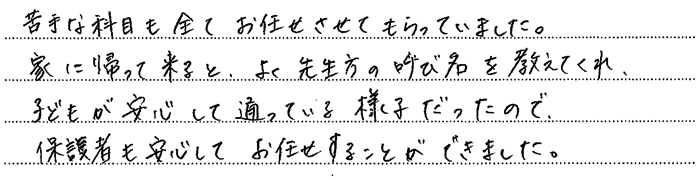 苦手な科目も全てお任せさせてもらっていました。
家に帰って来ると、よく先生方の呼び名を教えてくれ、
子どもが安心して通っている様子だったので、
保護者も安心してお任せすることができました。